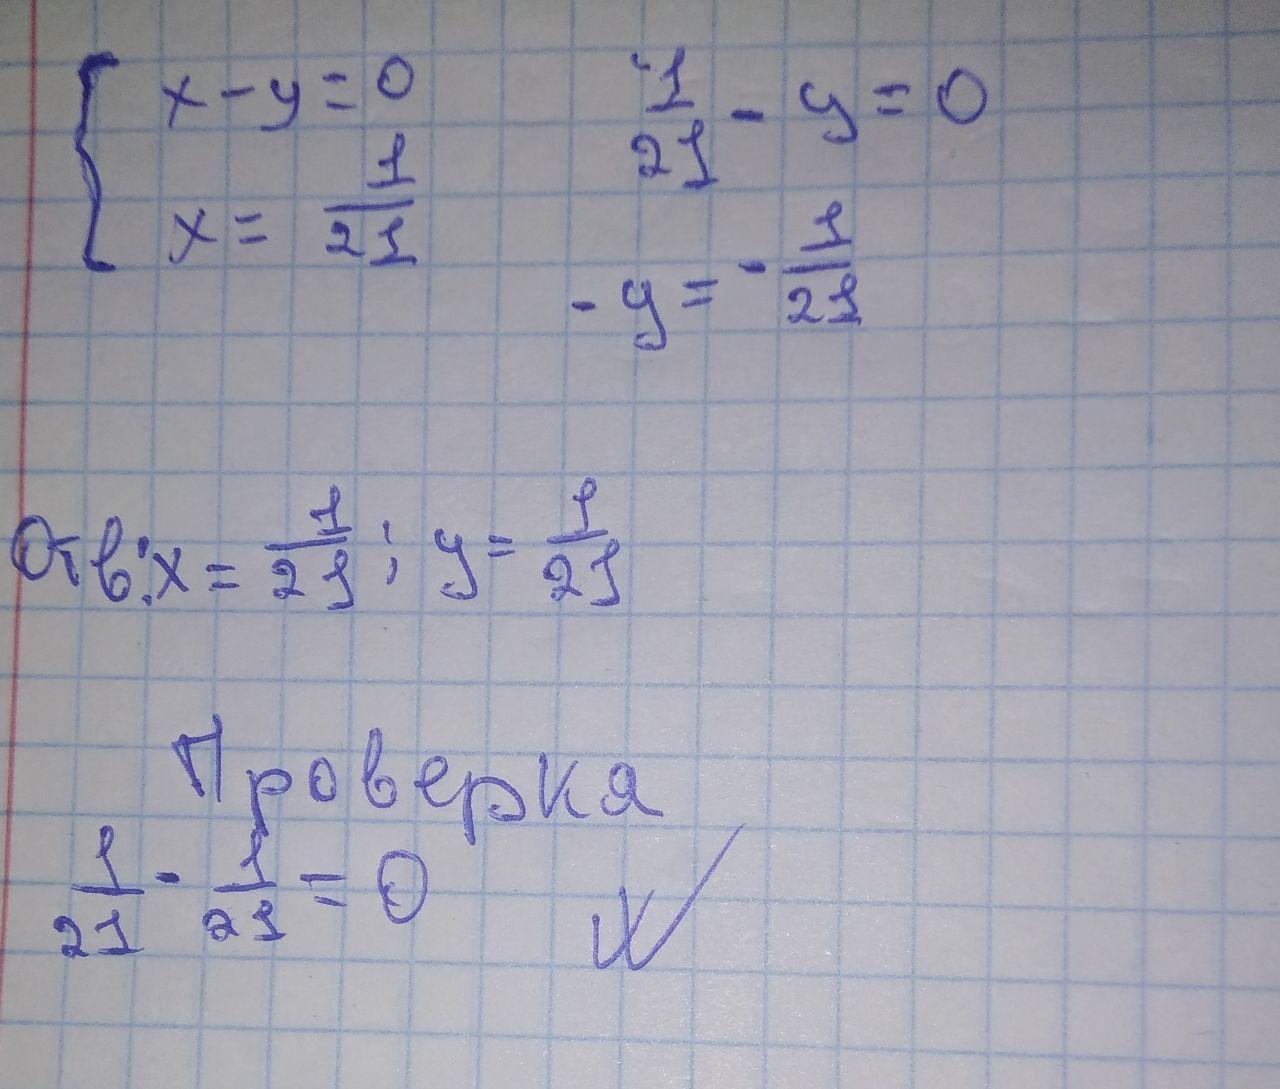 x - y = 0
x = 1/21
1/21 - y = 0
- y = - 1/21
Отв: x = 1/21 ; y = 1/21
Проверка
1/21 - 1/21 = 0